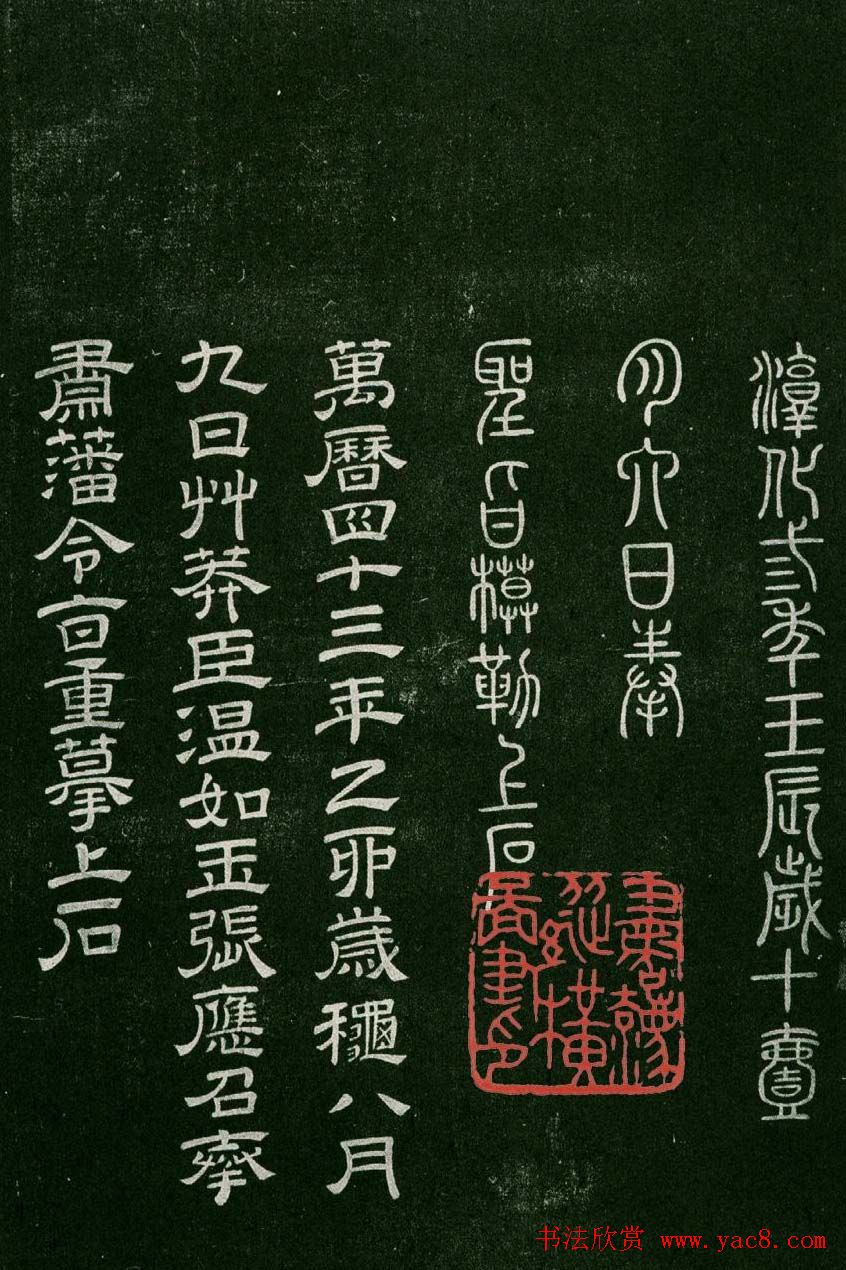 淳化弎秊壬辰歲十壹
月六日奉
聖旨模勒上石
萬曆四十三年乙卯歲龝八月
九日艸莽臣温如玉張應召奉
肅藩令旨重摹上石
书法欣赏 www.yac8.com